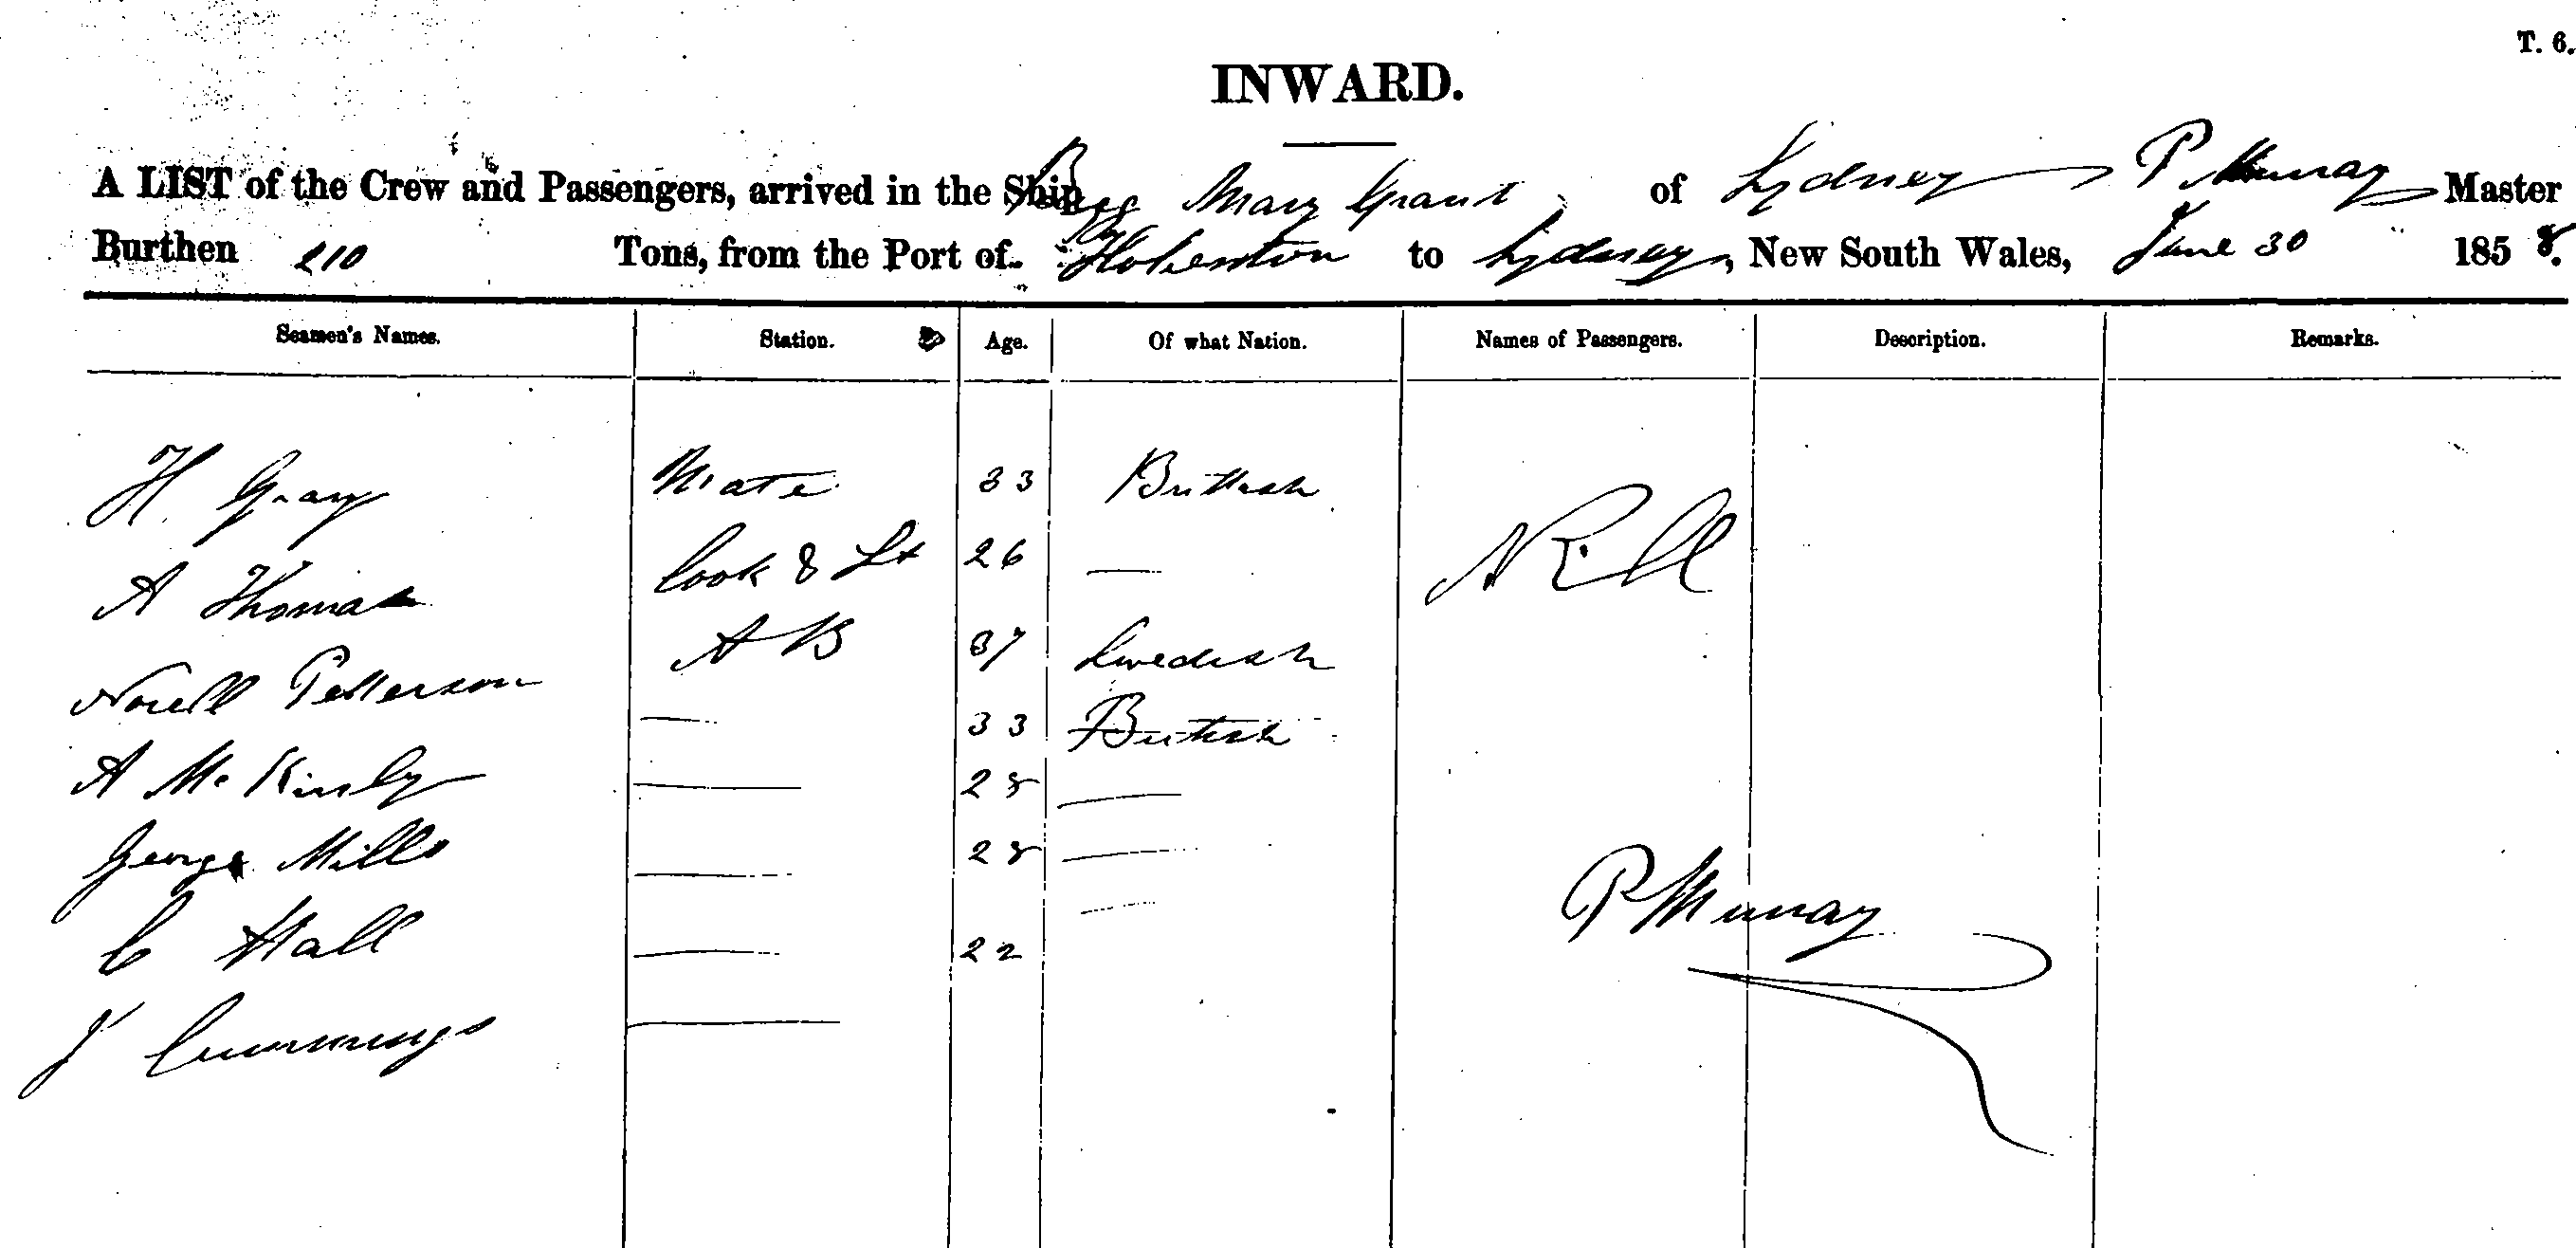 T. 6.
INWARD.
A LIST of the Crew and Passengers, arrived in the Ship Brigg Mary Grant of Sydney P Murray Master
Burthen 210 Tons, from the Port of Hoberton to Sydney, New South Wales, June 30 1858.
Seamen's Names. Station. Age. Of what Nation. Names of Passengers. Description. Remarks.
H Gray Mate 33 Brittish
A Thomas Cook & St 26 —
Petterson A B 37 Swedish
A McKinly — 33 British
George Mills — 28 —
C Hall — 28 —
J Cummings — 22 —
P Murray